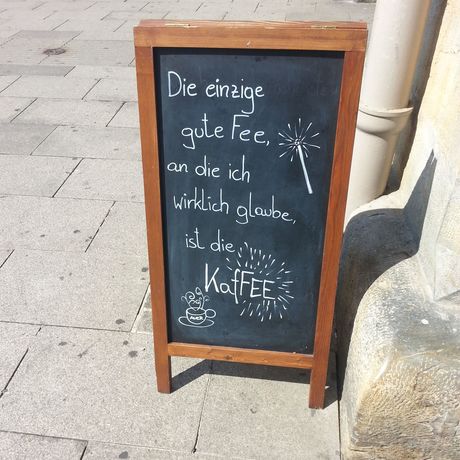 Die einzige
gute Fee,
an die ich
wirklich glaube,
ist die
KafFEE